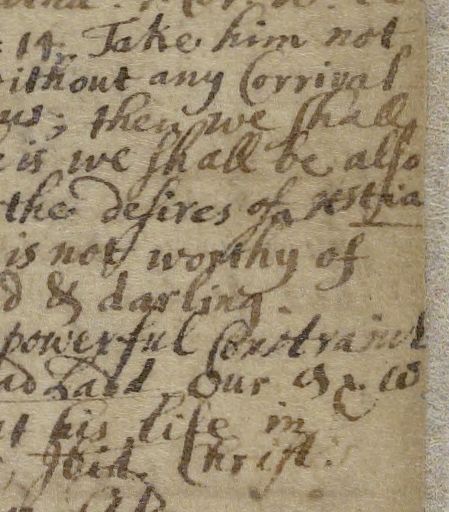 14. Take him not
without any Corrival
us; then we shall
e is we shall be also
the desires of a xstian
is not worthy of
d & darling
powerful Constraint
Our
his life in
Ibid. Christ: